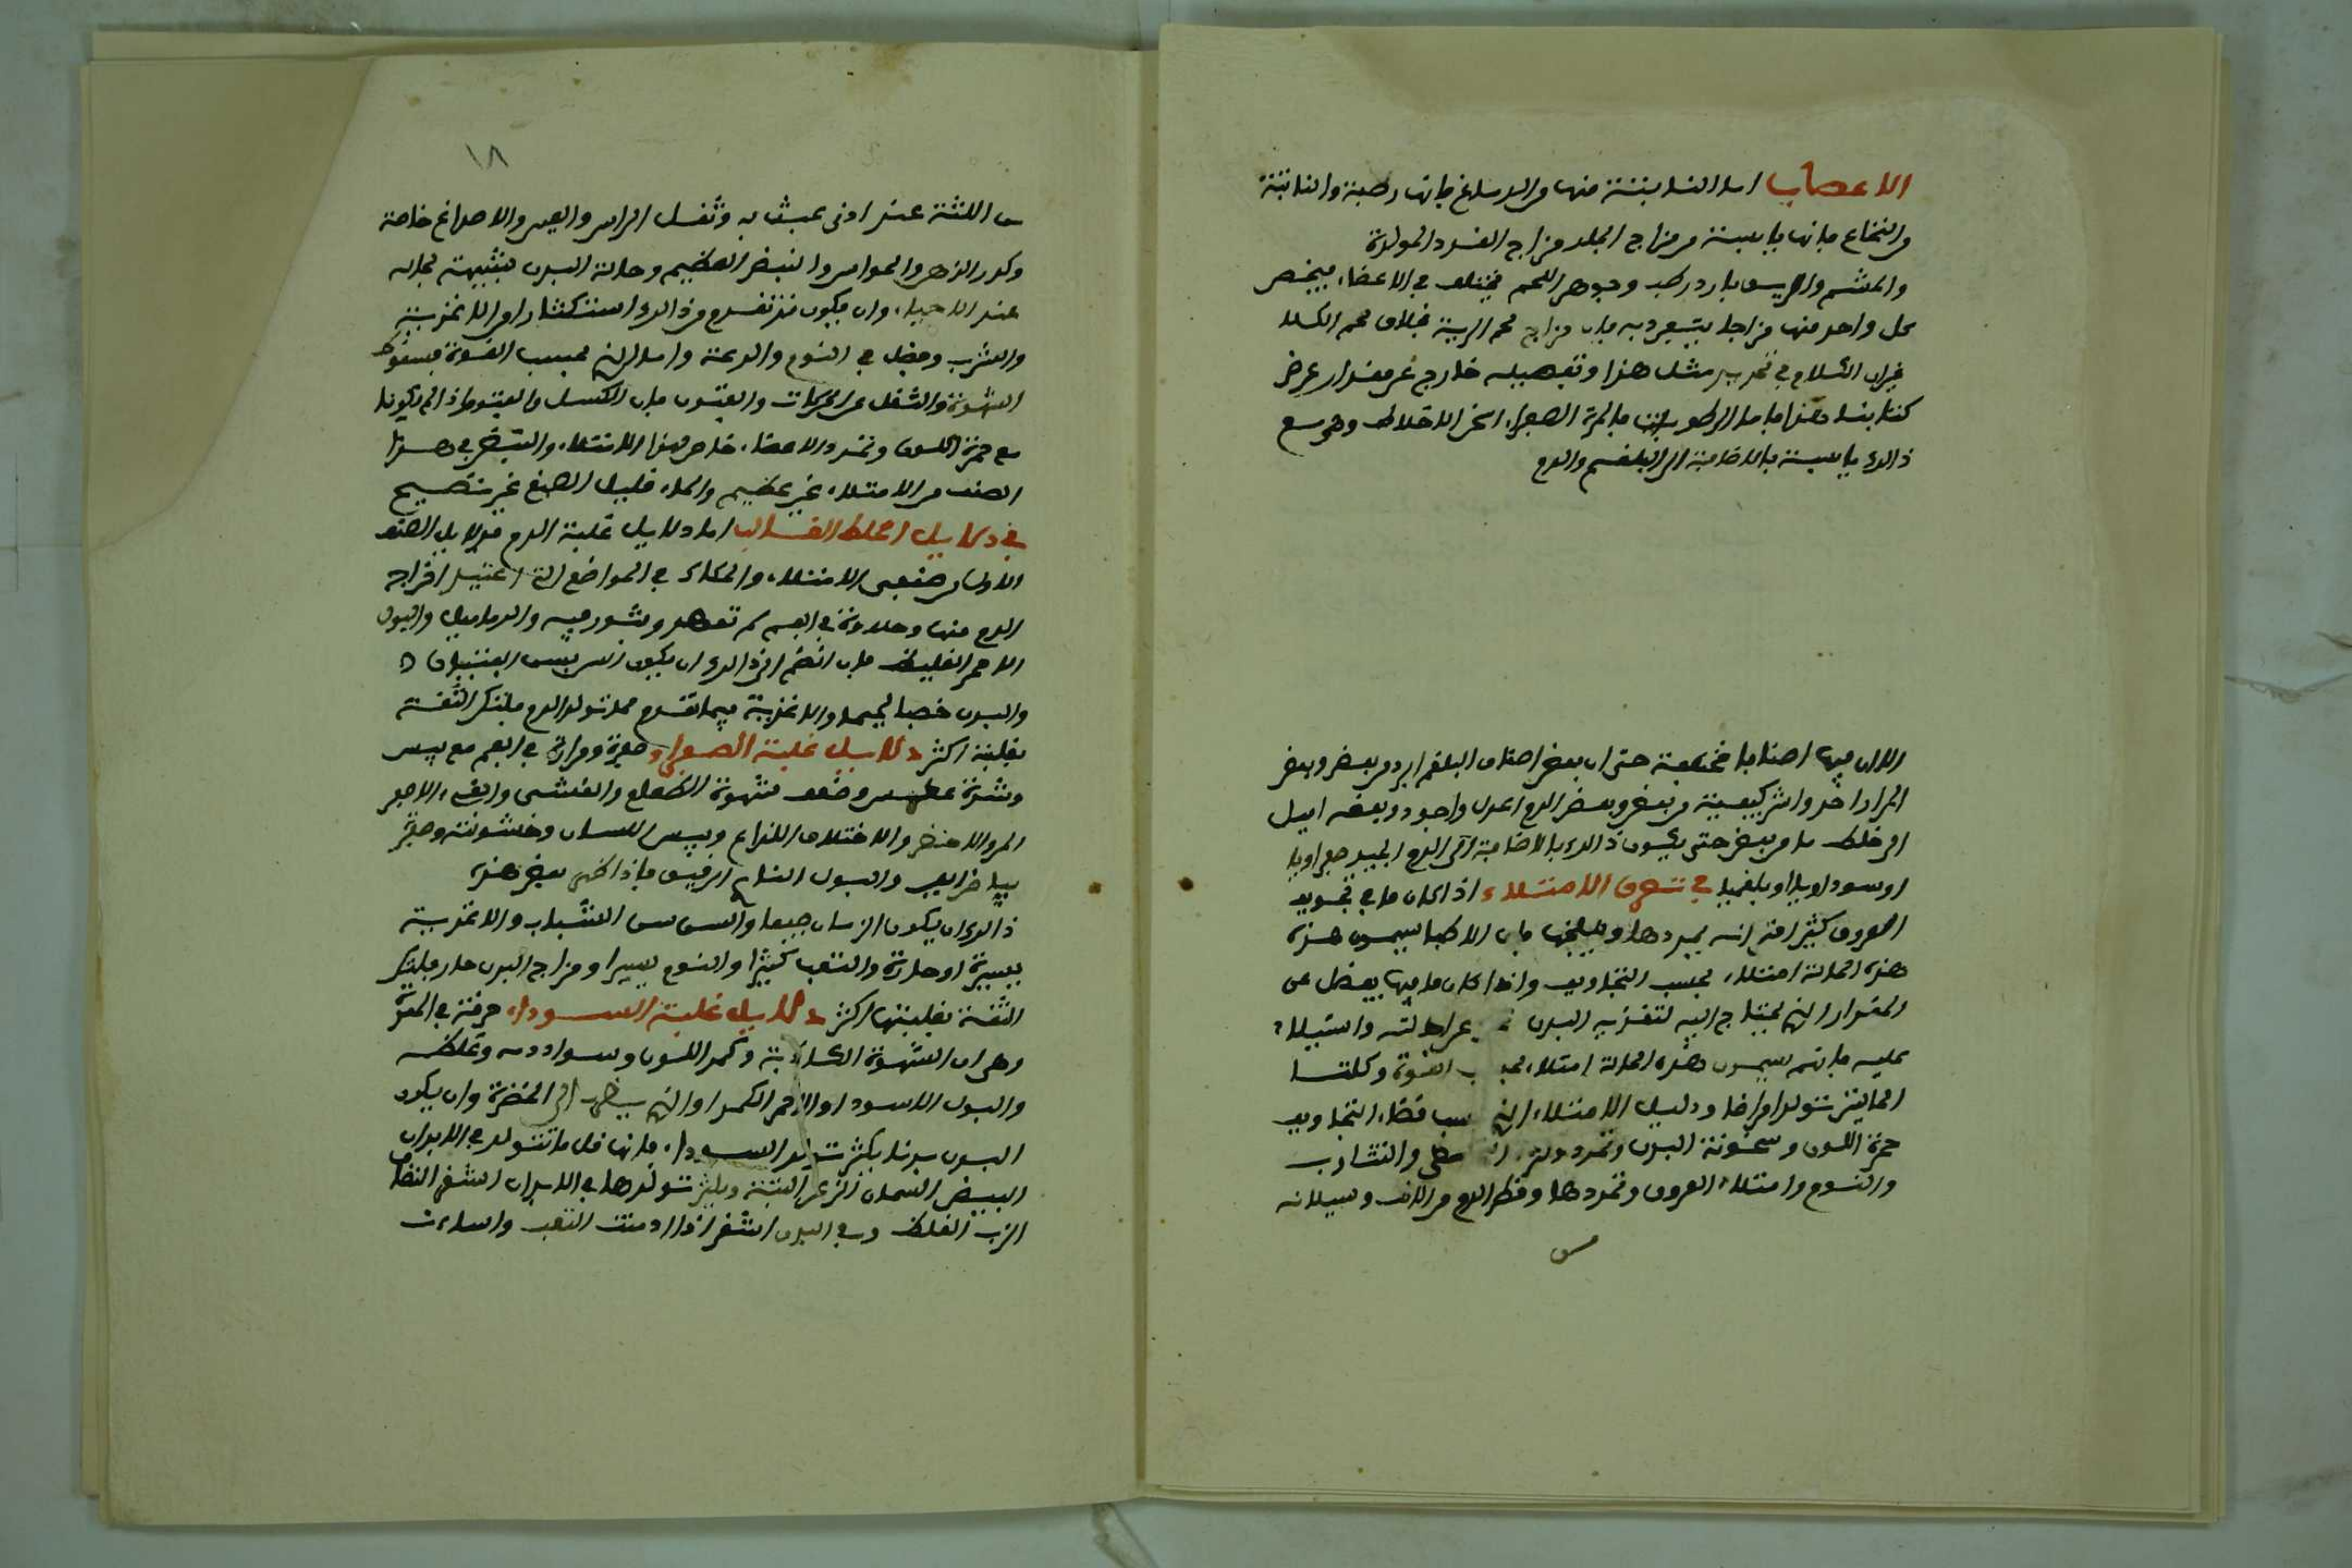 الاعصاب اما النابتة منها من الدماغ فانها رطبة والنابتة
من النخاع فانها يابسة ومزاج الجلد مزاج الغدد المولدة
والشحم والرئيس بارد رطب وجوهر اللحم يختلف في الاعضاء فيختص
كل واحد منها مزاجا يتفرد به فان مزاج لحم الرية خلاف لحم الكلا
غير ان الكلام في تحديد مثل هذا وتفصيله خارج عن مقدار غرض
كتابنا هذا فاما الرطوبات فالمرة الصفراء اسخن الاخلاط وهي مع
ذالك يابسة بالاضافة الى البلغم والدم
الا ان فيها اصنافا مختلفة حتى ان بعض اصناف البلغم ابرد من بعض وبعض
المرار احد واشد كيفية من بعض وبعض الدم اعدل واجود وبعضه اميل
الى خلط ما من بعض حتى يكون ذالك بالاضافة الى الدم الجيد صفراويا
او سوداويا او بلغميا في تعرف الامتلاء اذا كان ما في تجويف
العروق كثيرا حتى انه يمددها فان الاطبا يسمون هذه
هذه الحالة امتلاء بحسب التجاويف واذا كان ما فيها يفضل عن
المقدار الذي يحتاج اليه لتغذيه البدن عن احالته واستيلاء
عليه فانهم يسمون هذه الحالة امتلاء القوة وكلتا
الحالتين تولد امراضا ودليل الامتلاء الذي التجاويف
حمرة اللون وسخونة البدن وتمدد والتثاوب
والنوم وامتلاء العروق وتمددها وقطر الدم من الانف وسيلانه
من
١٨
من اللثة عند ادنى عبث به وثقل الراس والعين والاصداغ خاصة
وكدر الذهن والحواس والنبض العظيم وحالة البدن شبيهة بحاله
عند الاحياء وان يكون قد تقدم من ذالك استكثارا من الاغذية
والشرب وفضل في النوم والدعة واما الذي بحسب القوة فسقوط
الشهوة والثقل عن الحركات والفتور فان الكسل والفتور اذا لم يكونا
مع حمرة اللون وتمدد الاعضاء خاص بهذا الامتلاء والنبض في هذا
الصنف من الامتلاء غير عظيم والماء قليل الصبغ غير نضيج
في دلايل الخلط الغالب اما دلايل غلبة الدم فدلايل الصنف
الاول من صنفى الامتلاء والحكاك في المواضع التي اعتيد اخراج
الدم منها وحلاوة في الفم لم تعهد وبثور فيه والدماميل والبول
الاحمر الغليظ فان انضم الى ذالك ان يكون السن سن الفتيان
والبدن خصبا لحيما والاغذية فيما تقدم مما تولد الدم فلتكن الثقة
بغلبته اكثر دلايل غلبة الصفراء صفرة ومرارة في الفم مع يبس
وشدة عطش وضعف شهوة الطعام والغشى والقىء الاصفر
المر والاخضر والاختلاف اللذاع ويبس اللسان وخشونته وصفرة
بياض العين والبول الناري الرقيق فاذا ظهر بعض هذه
ذالك وان يكون الزمان صيفا والسن سن الشباب والاغذية
يسيرة او حارة والتعب كثيرا والنوم يسيرا ومزاج البدن حار فلتكن
الثقة بغلبتها اكثر دلايل غلبة السوداء حرقة في المعدة
وهي ان الشهوة الكاذبة وكمد اللون وسواد دمه وغلظه
والبول الاسود او الاحمر الكمد او الذي يضرب الى الخضرة وان يكون
البدن بدنا يكثر تولد السوداء فانها قل ما تتولد في الابدان
البيض السمان الزعر البتة ويكثر تولدها في الابدان الشقر القضاف
الزب الغلاظ وفي البدن الاشقر اذا ادمنت التعب واساءت